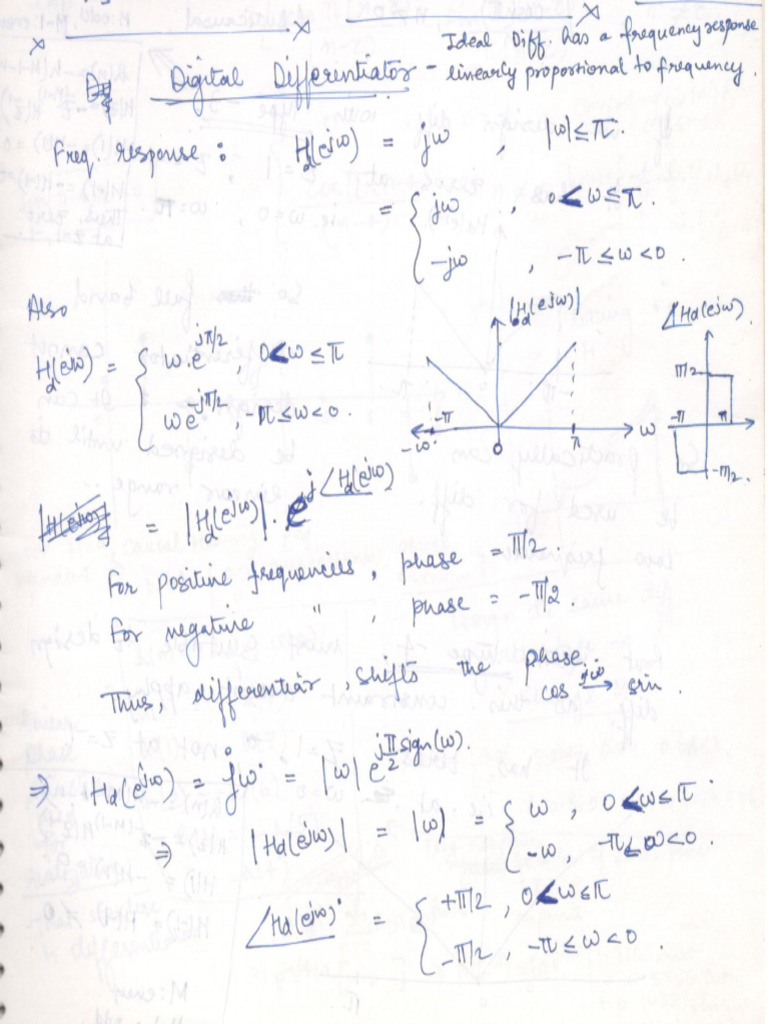 Ideal Diff. has a frequency response
Digital Differentiator - linearly proportional to frequency.
Freq. response : H_d(e^{jω}) = jω , |ω| ≤ π.
= { jω , 0 < ω ≤ π.
-jω , -π ≤ ω < 0 .
Also
H_d(e^{jω}) = { ω.e^{jπ/2} , 0 < ω ≤ π
ωe^{-jπ/2} , -π ≤ ω < 0 .
|H_d(e^{jω})|
∠Hd(e^{jω}).
-ω -π 0 π ω
π/2
-π π
-π/2.
= |H_d(e^{jω})| . e^{j∠H_d(e^{jω})}
For positive frequencies, phase = π/2
For negative " , phase = -π/2.
Thus, differentiator, shifts the phase.
cos → sin .
⇒ Hd(e^{jω}) = jω = |ω| e^{jπ/2 sign(ω)}.
⇒ |Hd(e^{jω})| = |ω| = { ω , 0 < ω ≤ π .
-ω, -π ≤ ω < 0 .
∠Hd(e^{jω}) = { +π/2 , 0 < ω ≤ π
-π/2 , -π ≤ ω < 0 .